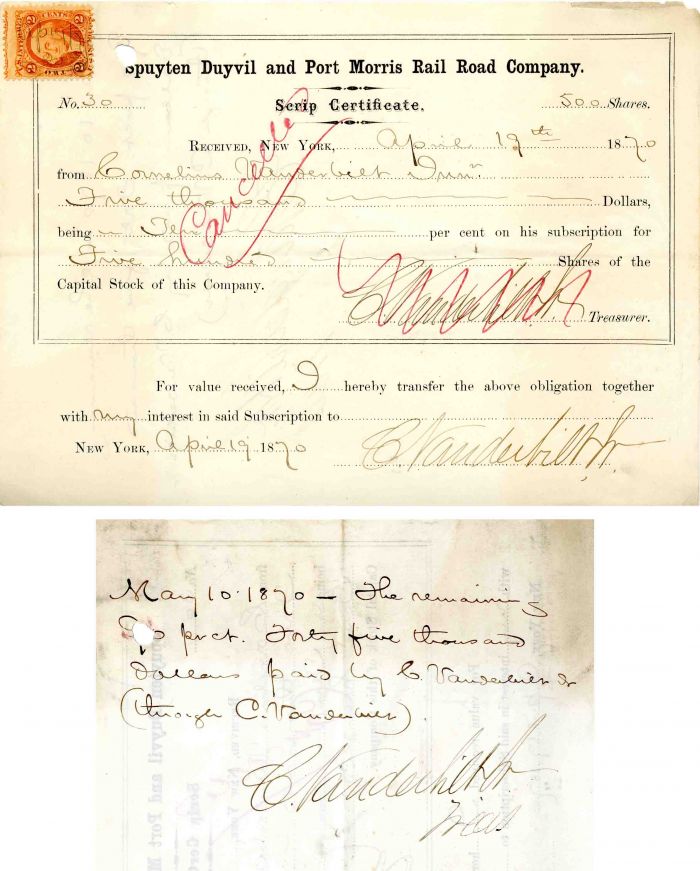 2 CENTS 2
Spuyten Duyvil and Port Morris Rail Road Company.
No. 30 Scrip Certificate. 500 Shares.
Cancelled
RECEIVED, NEW YORK, April 19th 1870
from Cornelius Vanderbilt Junr.
Five thousand Dollars,
being Ten per cent on his subscription for
Five hundred Shares of the
Capital Stock of this Company.
C. Vanderbilt Jr. Treasurer.
For value received, I hereby transfer the above obligation together
with my interest in said Subscription to
NEW YORK, April 19 1870 C. Vanderbilt Jr.
May 10. 1870 — The remaining
90 pr ct. Forty five thousand
Dollars paid by C. Vanderbilt Jr
(through C. Vanderbilt).
C. Vanderbilt Jr
Treas